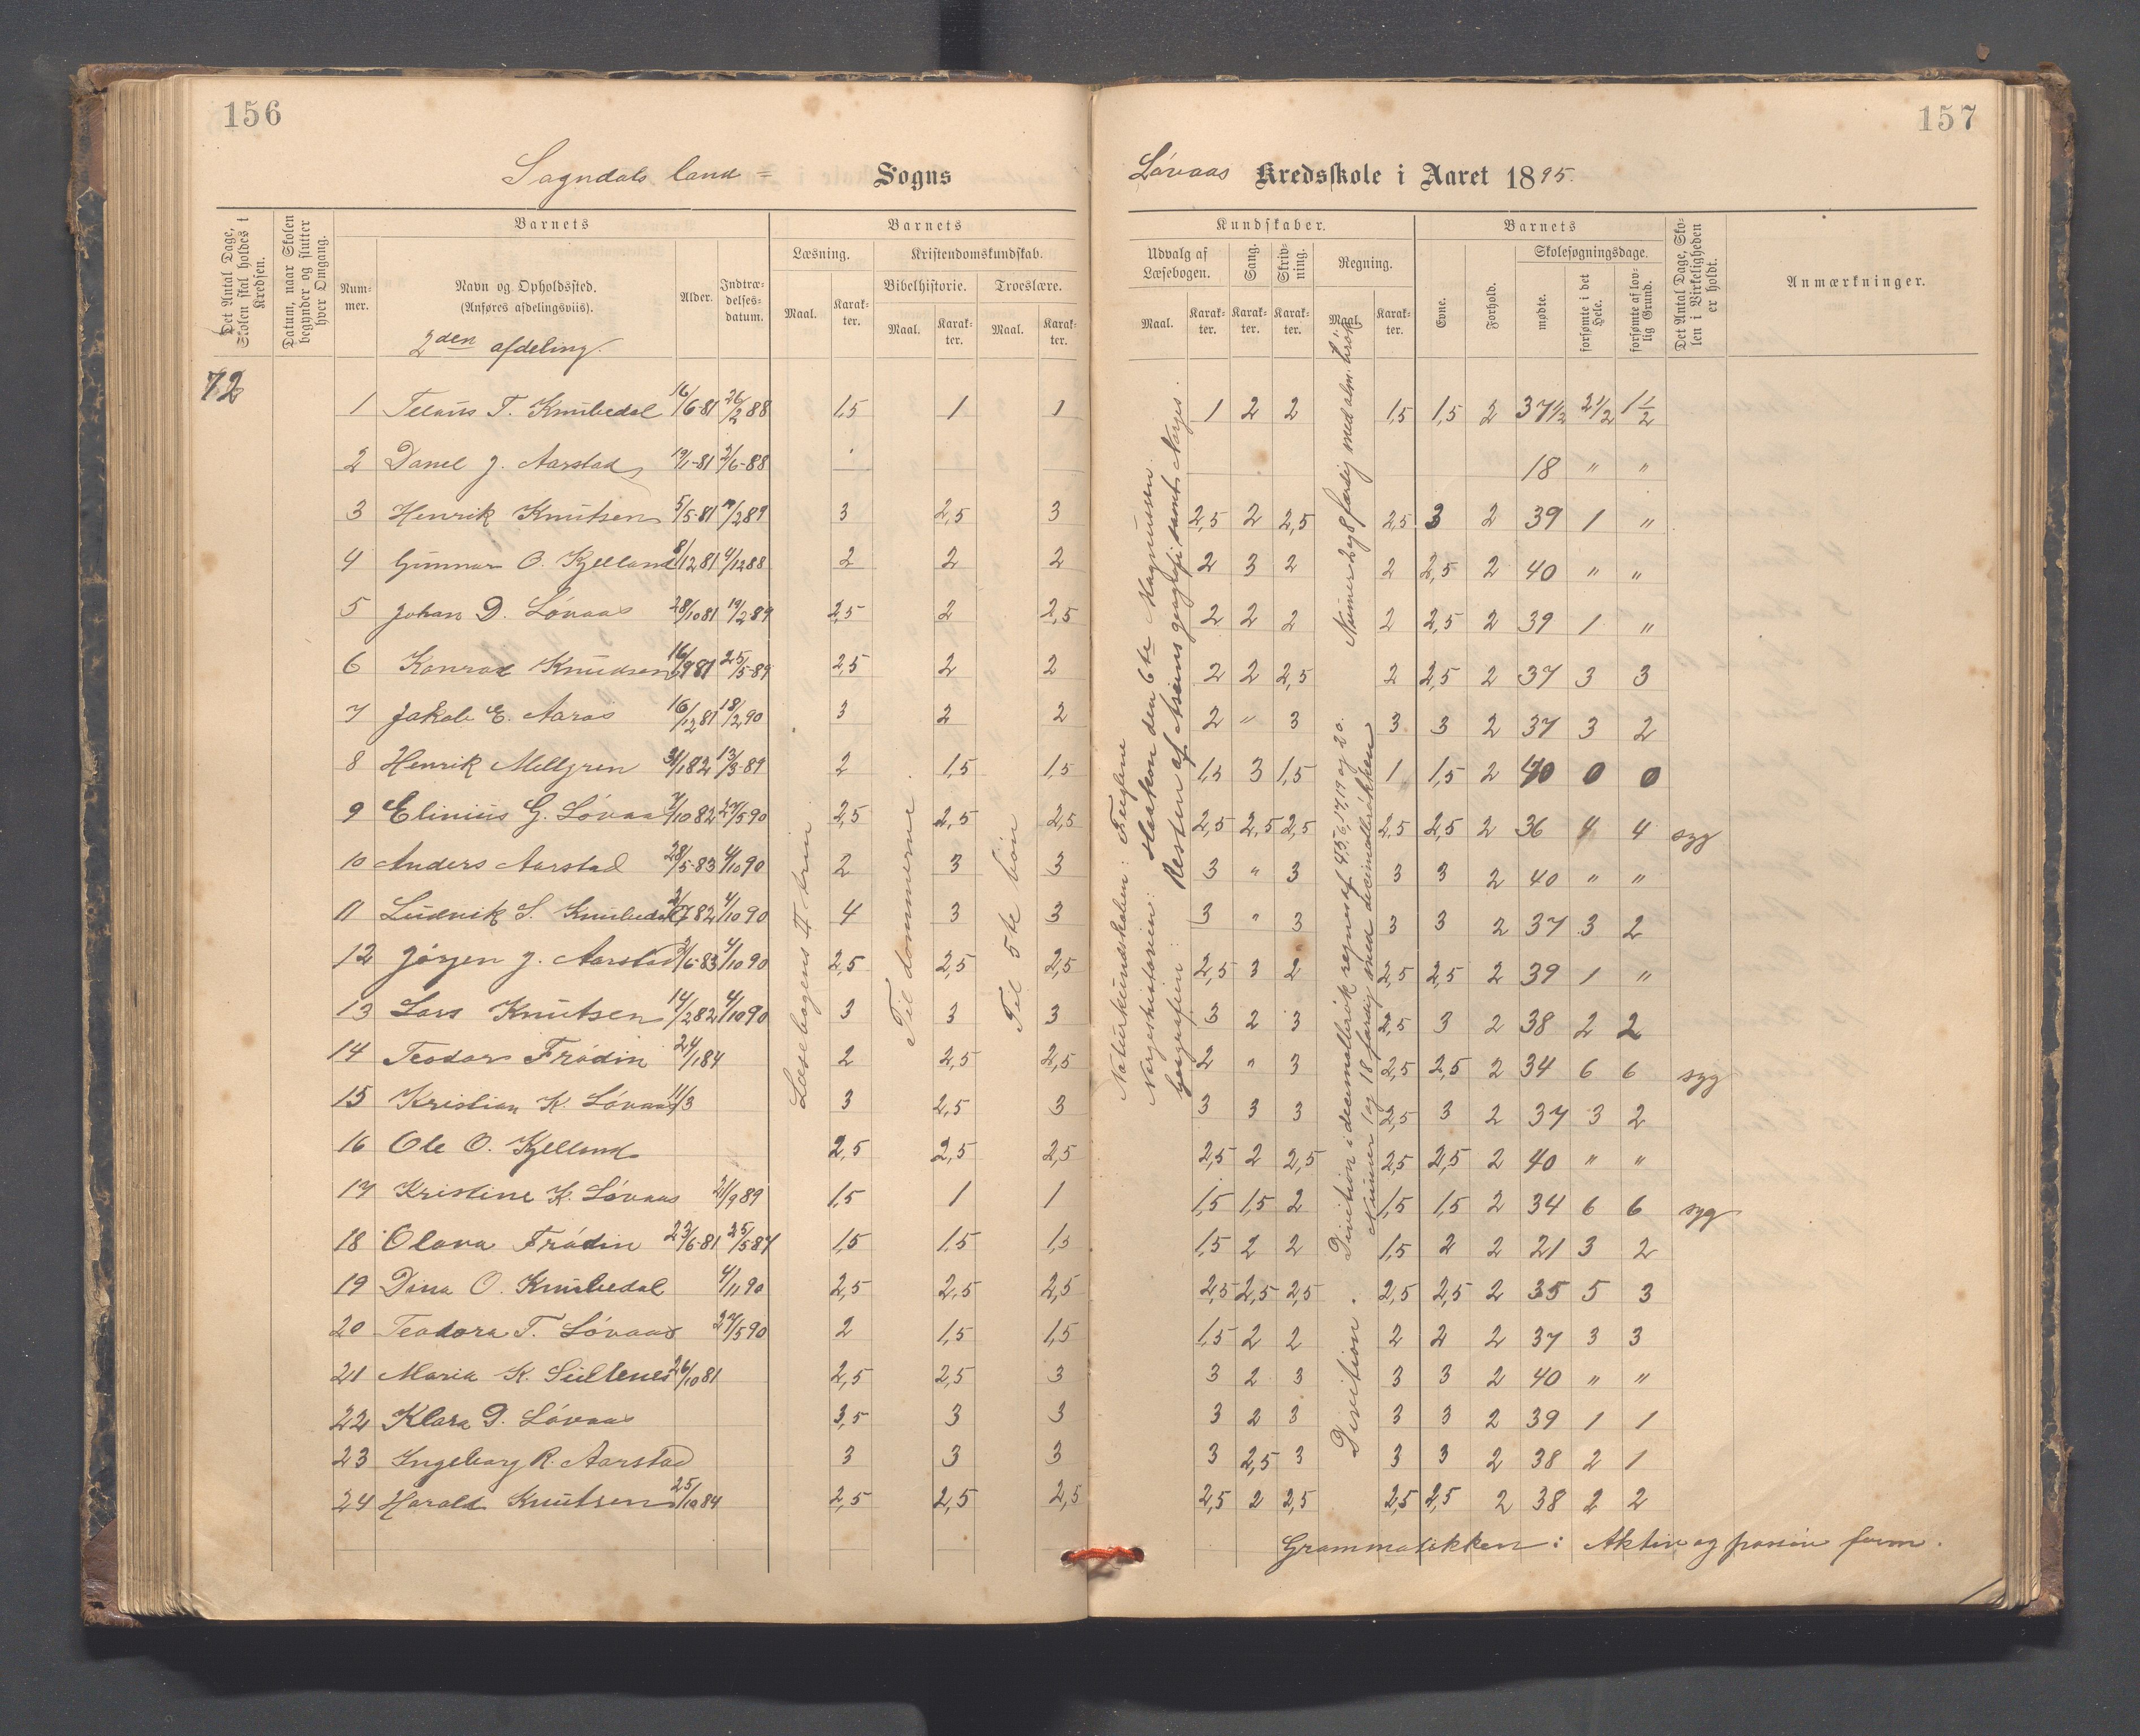 156
157
Sogndals land= Sogns
Lövaas Kredsskole i Aaret 1895.
Det Antal Dage, Skolen skal holdes i Kredsen.
Datum, naar Skolen begynder og slutter hver Omgang.
Barnets
Nummer.
Navn og Opholdssted.
(Anføres afdelingsviis).
Alder.
Indtrædelsesdatum.
2den afdeling.
Barnets
Læsning.
Kristendomskundskab.
Bibelhistorie. Troeslære.
Maal. Karakter. Maal. Karakter. Maal. Karakter.
Kundskaber.
Udvalg af Læsebogen. Sang. Skrivning. Regning.
Maal. Karakter. Karakter. Karakter. Maal. Karakter.
Barnets
Evne. Forhold.
Skolesøgningsdage.
mødte. forsømte i det Hele. forsømte af lovlig Grund.
Det Antal Dage, Skolen i Virkeligheden er holdt.
Anmærkninger.
72
1 T. Knubedal 16/6-81 26/2 88 1,5 1 1 1 2 2 1,5 1,5 2 37 1/2 2 1/2 1 1/2
2 Danel J. Aarstad 19/1-81 2/6-88 18 " "
3 Henrik Knutsen 5/5-81 /2 89 3 2,5 3 2,5 2 2,5 2,5 3 2 39 1 "
4 Gunnar O. Kjelland 8/12 81 4/12 88 2 2 2 2 3 2 2 2,5 2 40 " "
5 Johan D. Lövaas 28/10 81 19/2 89 2,5 2 2,5 2 2 2 2 2,5 2 39 1 "
6 Konrad Knudsen 16/9 81 25/5-89 2,5 2 2 2 2 2,5 2 2,5 2 37 3 3
7 Jakob E. Aaros 16/12 81 18/2 90 3 2 2 2 " 3 3 3 2 37 3 2
8 Henrik Mellgren 31/1 82 13/3-89 2 1,5 1,5 1,5 3 1,5 1 1,5 2 40 0 0
9 Elinius G. Lövaas 7/10 82 27/5 90 2,5 2,5 2,5 2,5 2,5 2,5 2,5 2,5 2 36 4 4 syg
10 Anders Aarstad 28/5-83 4/10 90 2 3 3 3 " 3 3 3 2 40 " "
11 Ludvik S. Knubedal 2/7 82 4/10 90 4 3 3 3 " 3 3 3 2 37 3 2
12 Jörgen J. Aarstad 2/6-83 4/10 90 2,5 2,5 2,5 2,5 3 2 2,5 2,5 2 39 1 "
13 Lars Knutsen 14/2 82 4/10 90 3 3 3 3 2 3 2,5 3 2 38 2 2
14 Teodor Frödin 24/1 84 2 2,5 2,5 2 " 3 2,5 2,5 2 34 6 6 syg
15 Kristian K. Lövaas 11/3 3 2,5 3 3 3 3 2,5 3 2 37 3 2
16 Ole O. Kjelland 2,5 2,5 2,5 2,5 2 2,5 2,5 2,5 2 40 " "
17 Kristine K. Lövaas 21/9 89 1,5 1 1 1,5 1,5 2 1,5 1,5 2 34 6 6 syg
18 Olava Frödin 23/6-81 25/5 87 1,5 1,5 1,5 1,5 2 2 1,5 2 2 21 3 2
19 Dina O. Knubedal 4/11 90 2,5 2,5 2,5 2,5 2,5 2,5 2,5 2,5 2 35 5 3
20 Teodora T. Lövaas 27/5 90 2 1,5 1,5 1,5 2 2 2 2 2 37 3 3
21 Maria K. 26/10 81 2,5 2,5 3 3 2 3 3 3 2 40 " "
22 Klara D. Lövaas 3,5 3 3 3 2 3 3 3 2 39 1 1
23 Ingeborg R. Aarstad 3 3 3 3 2,5 3 3 3 2 38 2 1
24 Harald Knutsen 25/10 84 2,5 2,5 2,5 2,5 2 2,5 2,5 2,5 2 38 2 2
Læsebogens II trin
Til dommerne
Til 5te bön
Naturkundskaben: Fuglene
Norgeshistorien: Haakon den 6te Magnussen.
Geografien: Resten af geografi samt Norges.
Numer 2 og 8 færdig med alm. brök
Divition i decimalbrök regnes af 4,5,6,17,19 og 20.
Numer 1 og 18 færdig med decimalbrökken
Divition.
Grammatikken: Aktiv og passiv form.